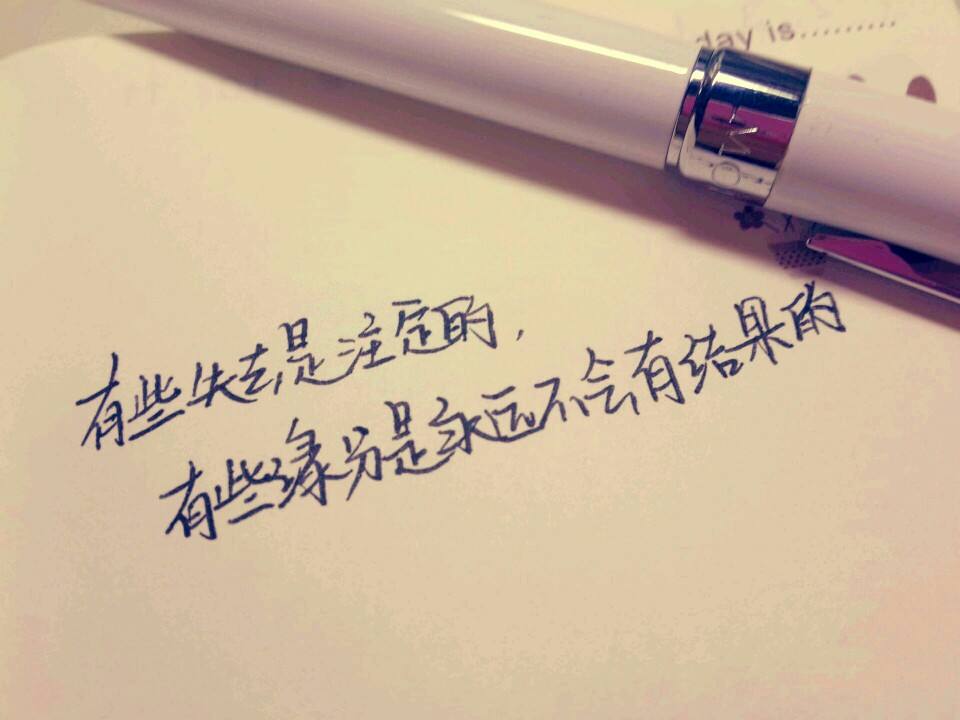 day is.........
有些失去是注定的,
有些缘分是永远不会有结果的